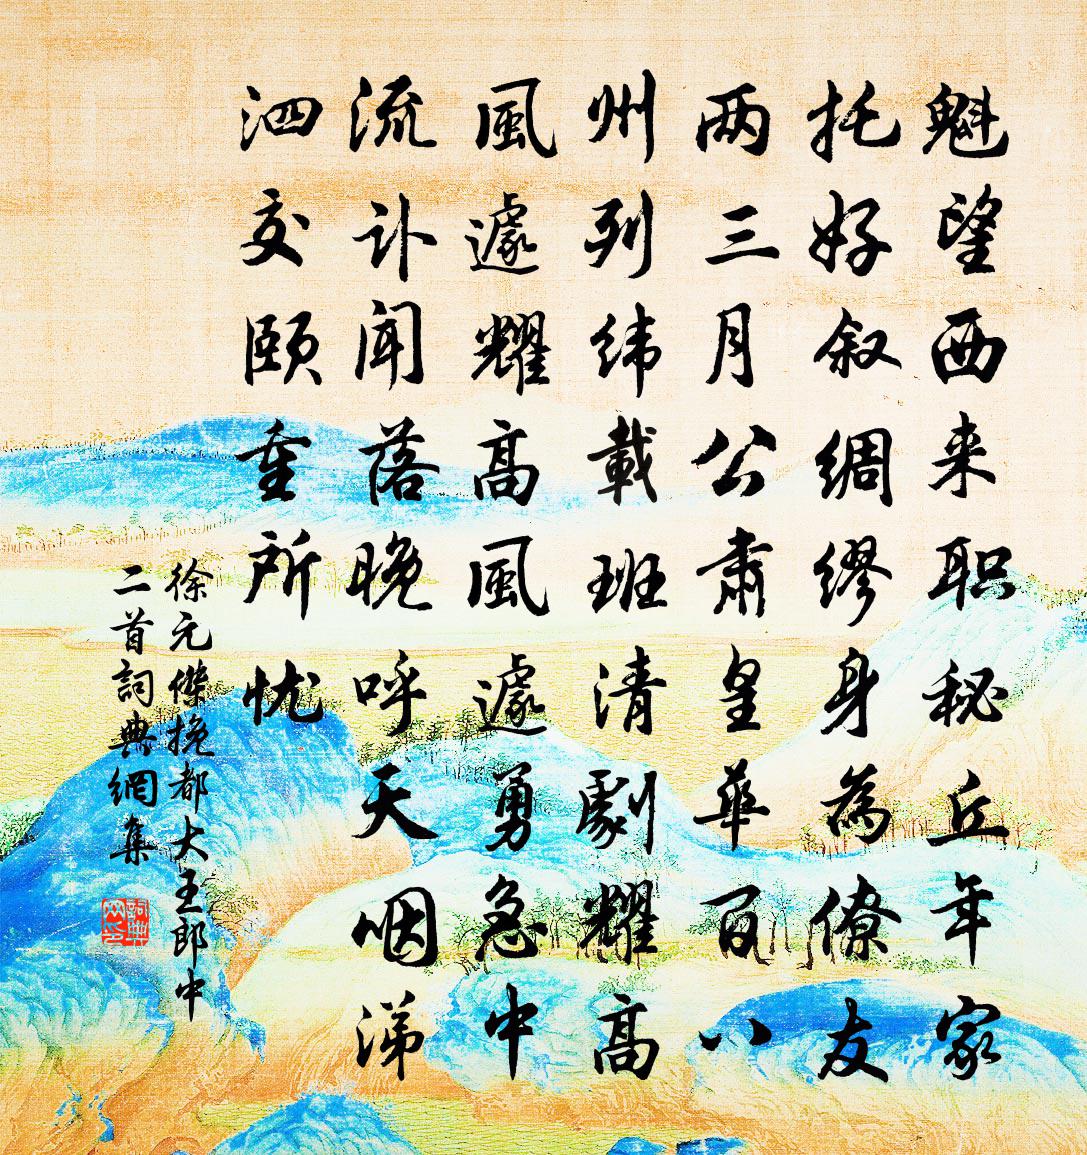 魁望西来职秘丘年家
托好叙绸缪身為僚友
两三月公肃皇華百八
州列纬載班清劇耀高
風遽耀高風遽勇急中
流讣闻落晚呼天咽涕
泗交颐重所忧
徐元傑挽都大王郎中
二首詞典網集